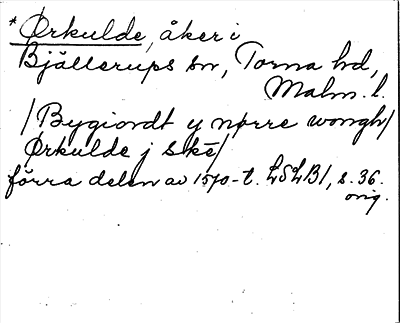 *Ørkulde, åker i
Bjällerups sn, Torna hd,
Malm. l.
/Bygiordt y nørre wongh/
Ørkulde j skē/
förra delen av 1570-t. LSLB1, s. 36.
orig.